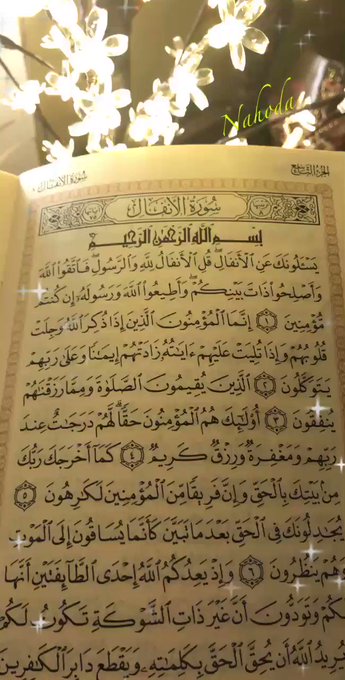 Nahoda
سُورَةُ الأَنفَالِ
الجزء التاسع
سُورَةُ الْأَنفَالِ
بِسْمِ اللَّهِ الرَّحْمَٰنِ الرَّحِيمِ
يَسْـَٔلُونَكَ عَنِ ٱلْأَنفَالِ ۖ قُلِ ٱلْأَنفَالُ لِلَّهِ وَٱلرَّسُولِ ۖ فَٱتَّقُوا۟ ٱللَّهَ
وَأَصْلِحُوا۟ ذَاتَ بَيْنِكُمْ ۖ وَأَطِيعُوا۟ ٱللَّهَ وَرَسُولَهُۥٓ إِن كُنتُم
مُّؤْمِنِينَ ١ إِنَّمَا ٱلْمُؤْمِنُونَ ٱلَّذِينَ إِذَا ذُكِرَ ٱللَّهُ وَجِلَتْ
قُلُوبُهُمْ وَإِذَا تُلِيَتْ عَلَيْهِمْ ءَايَٰتُهُۥ زَادَتْهُمْ إِيمَٰنًا وَعَلَىٰ رَبِّهِمْ
يَتَوَكَّلُونَ ٢ ٱلَّذِينَ يُقِيمُونَ ٱلصَّلَوٰةَ وَمِمَّا رَزَقْنَٰهُمْ
يُنفِقُونَ ٣ أُو۟لَٰٓئِكَ هُمُ ٱلْمُؤْمِنُونَ حَقًّا ۚ لَّهُمْ دَرَجَٰتٌ عِندَ
رَبِّهِمْ وَمَغْفِرَةٌ وَرِزْقٌ كَرِيمٌ ٤ كَمَآ أَخْرَجَكَ رَبُّكَ
مِنۢ بَيْتِكَ بِٱلْحَقِّ وَإِنَّ فَرِيقًا مِّنَ ٱلْمُؤْمِنِينَ لَكَٰرِهُونَ ٥
يُجَٰدِلُونَكَ فِى ٱلْحَقِّ بَعْدَ مَا تَبَيَّنَ كَأَنَّمَا يُسَاقُونَ إِلَى ٱلْمَوْتِ
وَهُمْ يَنظُرُونَ ٦ وَإِذْ يَعِدُكُمُ ٱللَّهُ إِحْدَى ٱلطَّآئِفَتَيْنِ أَنَّهَا
لَكُمْ وَتَوَدُّونَ أَنَّ غَيْرَ ذَاتِ ٱلشَّوْكَةِ تَكُونُ لَكُمْ
وَيُرِيدُ ٱللَّهُ أَن يُحِقَّ ٱلْحَقَّ بِكَلِمَٰتِهِۦ وَيَقْطَعَ دَابِرَ ٱلْكَٰفِرِينَ